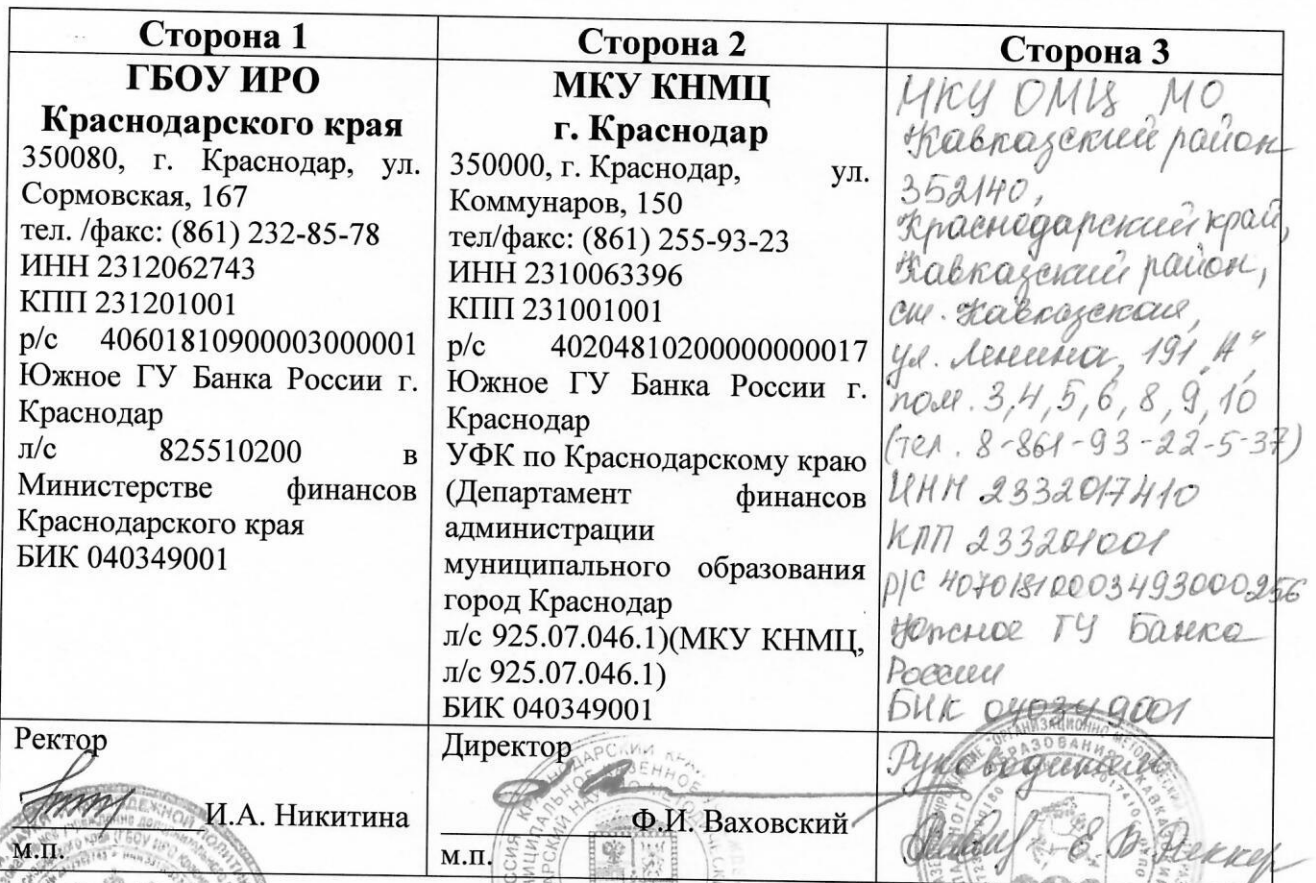 Сторона 1
ГБОУ ИРО
Краснодарского края
350080, г. Краснодар, ул.
Сормовская, 167
тел. /факс: (861) 232-85-78
ИНН 2312062743
КПП 231201001
р/с 40601810900003000001
Южное ГУ Банка России г.
Краснодар
л/с 825510200 в
Министерстве финансов
Краснодарского края
БИК 040349001
Ректор
И.А. Никитина
м.п.
Сторона 2
МКУ КНМЦ
г. Краснодар
350000, г. Краснодар, ул.
Коммунаров, 150
тел/факс: (861) 255-93-23
ИНН 2310063396
КПП 231001001
р/с 40204810200000000017
Южное ГУ Банка России г.
Краснодар
УФК по Краснодарскому краю
(Департамент финансов
администрации
муниципального образования
город Краснодар
л/с 925.07.046.1)(МКУ КНМЦ,
л/с 925.07.046.1)
БИК 040349001
Директор
Ф.И. Ваховский
м.п.
Сторона 3
МКУ ОМЦ МО
Кавказский район
352140,
Краснодарский край,
Кавказский район,
ст. Кавказская,
ул. Ленина, 191 "А"
пом. 3,4,5,6,8,9,10
(тел. 8-861-93-22-5-37)
ИНН 2332017410
КПП 233201001
р/с 40701810003493000256
Южное ГУ Банка
России
БИК 040349001
Руководитель